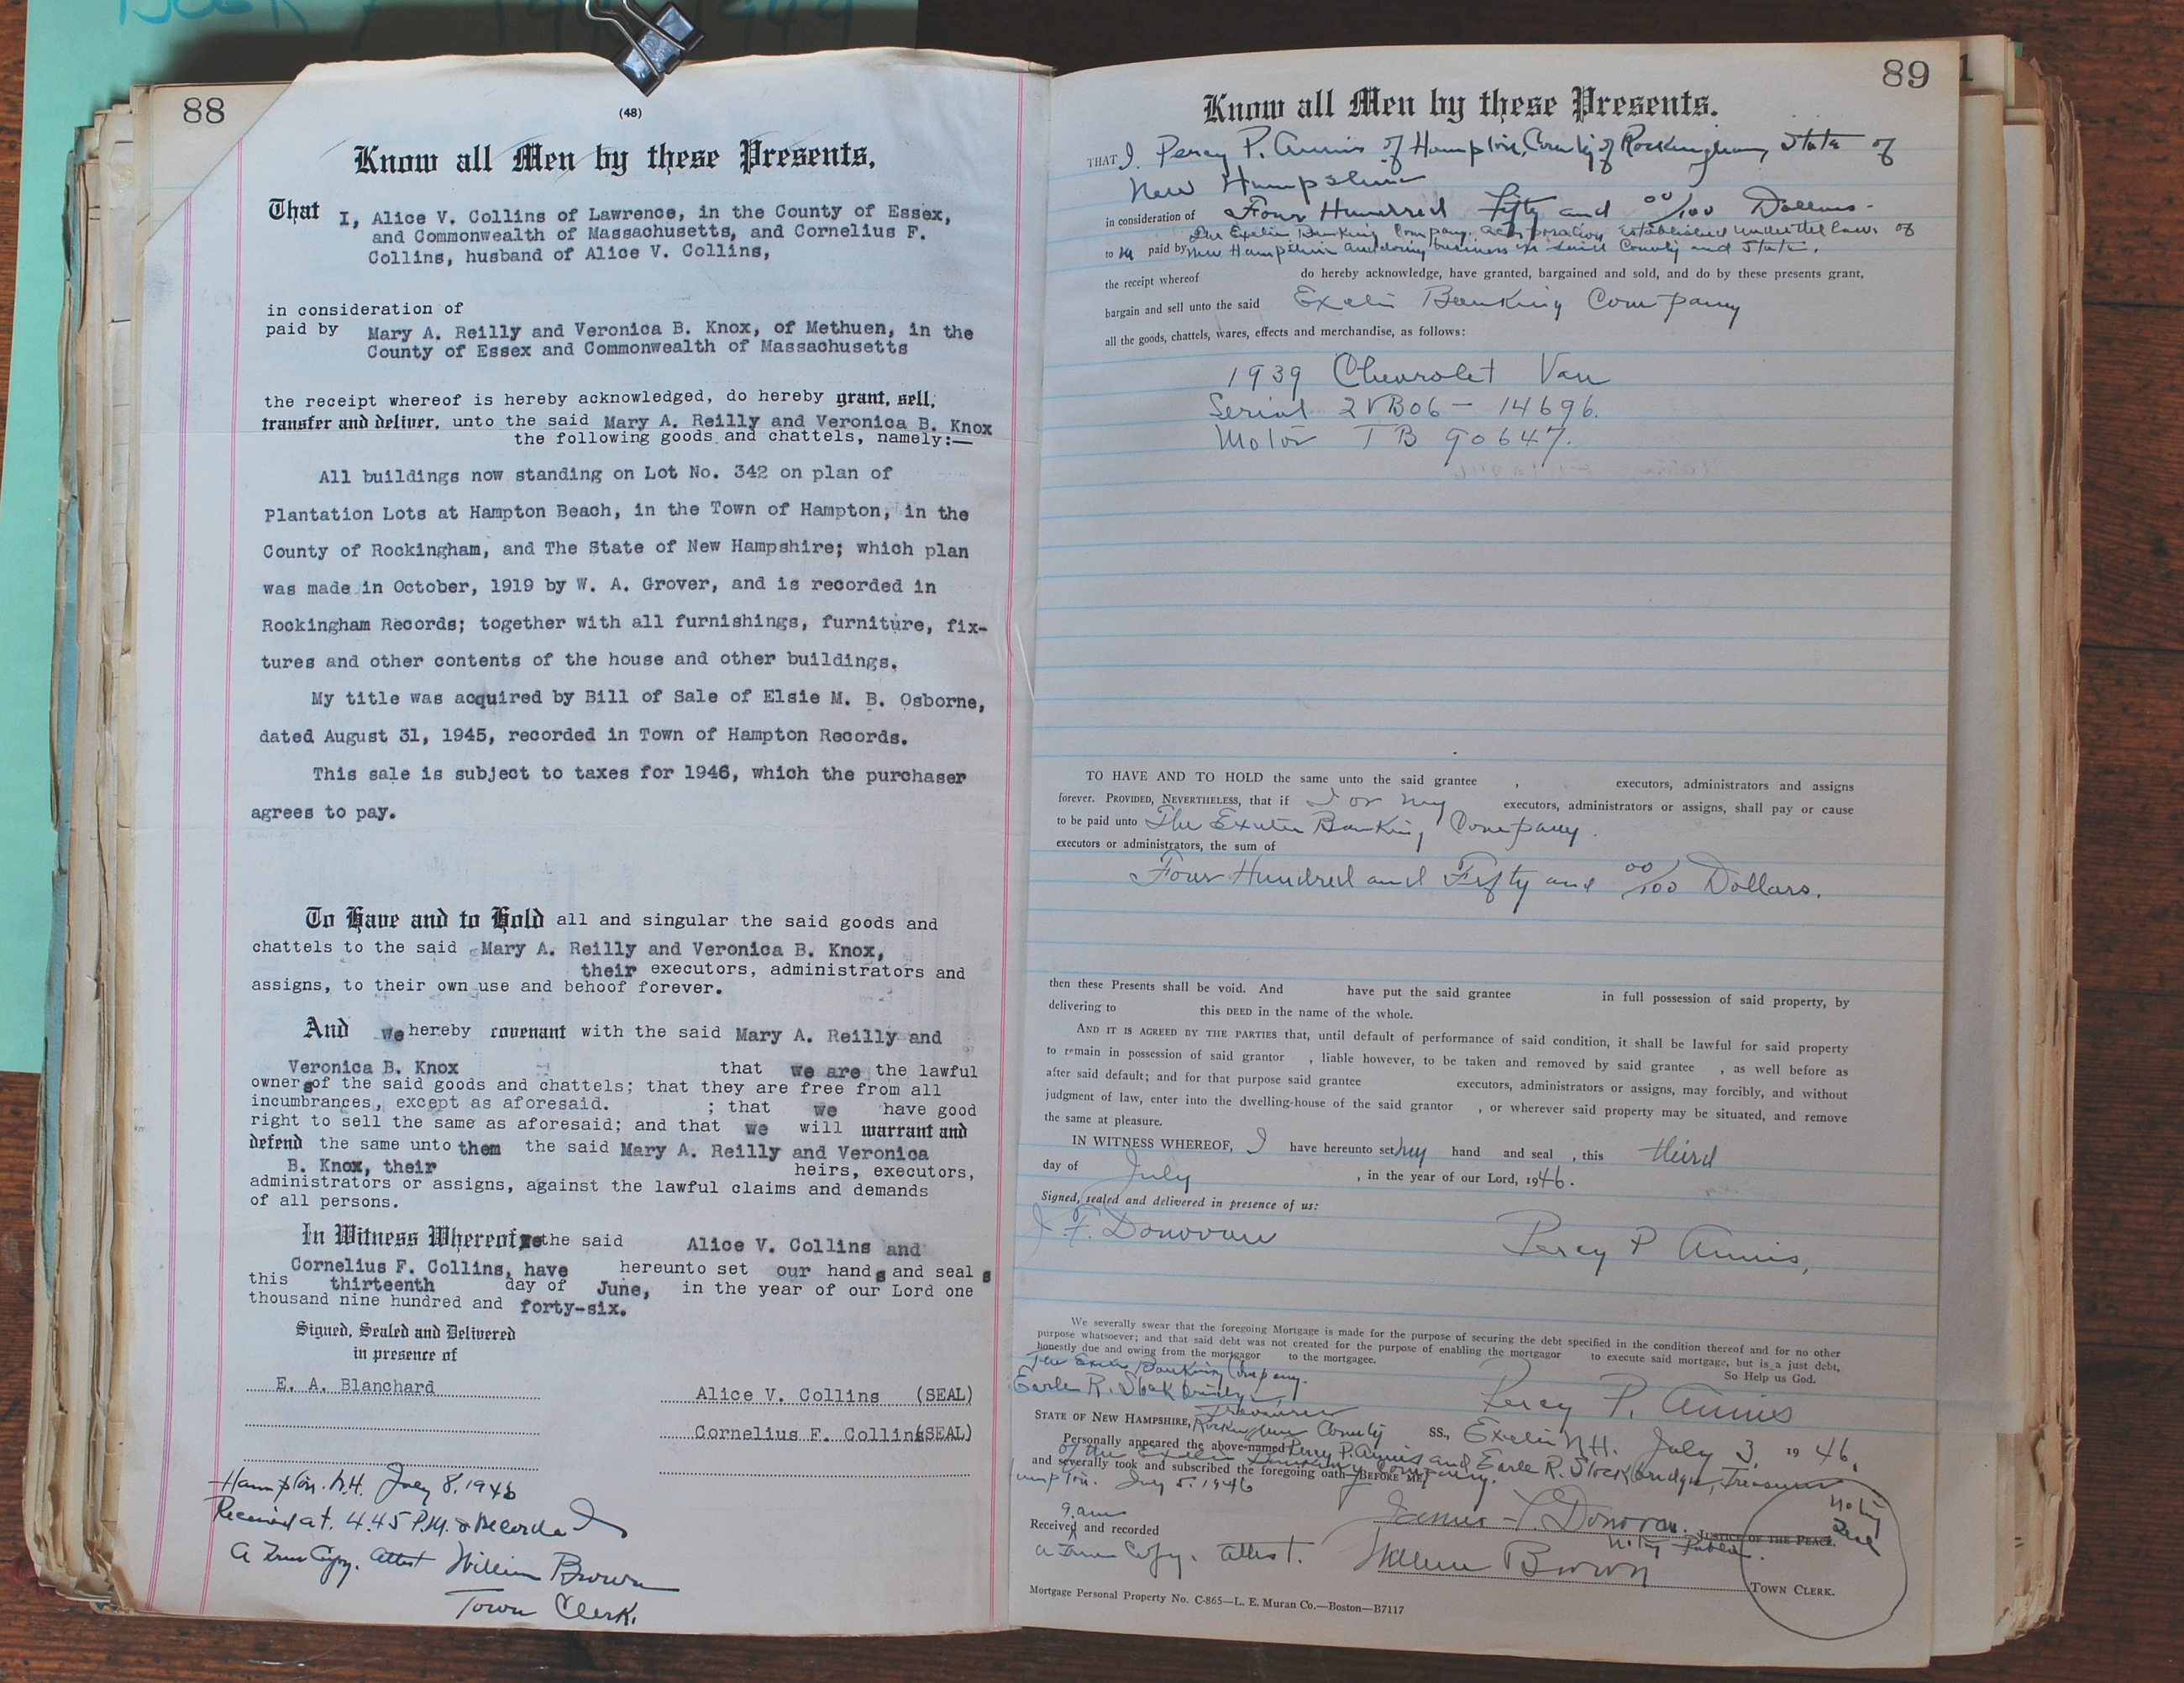 88
(48)
Know all Men by these Presents,
That I, Alice V. Collins of Lawrence, in the County of Essex,
and Commonwealth of Massachusetts, and Cornelius F.
Collins, husband of Alice V. Collins,
in consideration of
paid by Mary A. Reilly and Veronica B. Knox, of Methuen, in the
County of Essex and Commonwealth of Massachusetts
the receipt whereof is hereby acknowledged, do hereby grant, sell,
transfer and deliver, unto the said Mary A. Reilly and Veronica B. Knox
the following goods and chattels, namely:—
All buildings now standing on Lot No. 342 on plan of
Plantation Lots at Hampton Beach, in the Town of Hampton, in the
County of Rockingham, and The State of New Hampshire; which plan
was made in October, 1919 by W. A. Grover, and is recorded in
Rockingham Records; together with all furnishings, furniture, fix-
tures and other contents of the house and other buildings.
My title was acquired by Bill of Sale of Elsie M. B. Osborne,
dated August 31, 1945, recorded in Town of Hampton Records.
This sale is subject to taxes for 1946, which the purchaser
agrees to pay.
To Have and to Hold all and singular the said goods and
chattels to the said Mary A. Reilly and Veronica B. Knox,
their executors, administrators and
assigns, to their own use and behoof forever.
And we hereby covenant with the said Mary A. Reilly and
Veronica B. Knox that we are the lawful
owners of the said goods and chattels; that they are free from all
incumbrances, except as aforesaid. ; that we have good
right to sell the same as aforesaid; and that we will warrant and
defend the same unto them the said Mary A. Reilly and Veronica
B. Knox, their heirs, executors,
administrators or assigns, against the lawful claims and demands
of all persons.
In Witness Whereof, we the said Alice V. Collins and
Cornelius F. Collins, have hereunto set our hands and seals
this thirteenth day of June, in the year of our Lord one
thousand nine hundred and forty-six.
Signed, Sealed and Delivered
in presence of
E. A. Blanchard
Alice V. Collins (SEAL)
Cornelius F. Collins (SEAL)
Hampton. N.H. July 8. 1946
Received at. 4.45 P.M. & Recorded
A True Copy. Attest William Brown
Town Clerk.
89
1
Know all Men by these Presents.
THAT I, Percy P. Annis of Hampton, County of Rockingham, State of
New Hampshire
in consideration of Four Hundred Fifty and 00/100 Dollars-
to me paid by The Exeter Banking Company. a corporation established under the laws of
New Hampshire and doing business in said County and State.
the receipt whereof do hereby acknowledge, have granted, bargained and sold, and do by these presents grant,
bargain and sell unto the said Exeter Banking Company
all the goods, chattels, wares, effects and merchandise, as follows:
1939 Chevrolet Van
Serial 2VB06 - 14696.
Motor TB 90647.
TO HAVE AND TO HOLD the same unto the said grantee , executors, administrators and assigns
forever. PROVIDED, NEVERTHELESS, that if I or my executors, administrators or assigns, shall pay or cause
to be paid unto The Exeter Banking Company.
executors or administrators, the sum of
Four Hundred and Fifty and 00/100 Dollars.
then these Presents shall be void. And have put the said grantee in full possession of said property, by
delivering to this DEED in the name of the whole.
AND IT IS AGREED BY THE PARTIES that, until default of performance of said condition, it shall be lawful for said property
to remain in possession of said grantor , liable however, to be taken and removed by said grantee , as well before as
after said default; and for that purpose said grantee executors, administrators or assigns, may forcibly, and without
judgment of law, enter into the dwelling-house of the said grantor , or wherever said property may be situated, and remove
the same at pleasure.
IN WITNESS WHEREOF, I have hereunto set my hand and seal , this third
day of July , in the year of our Lord, 1946.
Signed, sealed and delivered in presence of us:
J. F. Donovan
Percy P Annis,
We severally swear that the foregoing Mortgage is made for the purpose of securing the debt specified in the condition thereof and for no other
purpose whatsoever; and that said debt was not created for the purpose of enabling the mortgagor to execute said mortgage, but is a just debt,
honestly due and owing from the mortgagor to the mortgagee. So Help us God.
The Exeter Banking Company.
Earle R. Stockbridge,
Treasurer
Percy P. Annis
STATE OF NEW HAMPSHIRE, Rockingham County SS., Exeter N.H. July 3, 1946.
Personally appeared the above-named Percy P. Annis and Earle R. Stockbridge, Treasurer
of the Exeter Banking Company.
and severally took and subscribed the foregoing oath—BEFORE ME,
Hampton. July 5. 1946
9. am
Received and recorded
James F. Donovan. JUSTICE OF THE PEACE.
Notary Public.
Notary Seal
a True Copy. Attest. William Brown TOWN CLERK.
Mortgage Personal Property No. C-865—L. E. Muran Co.—Boston—B7117